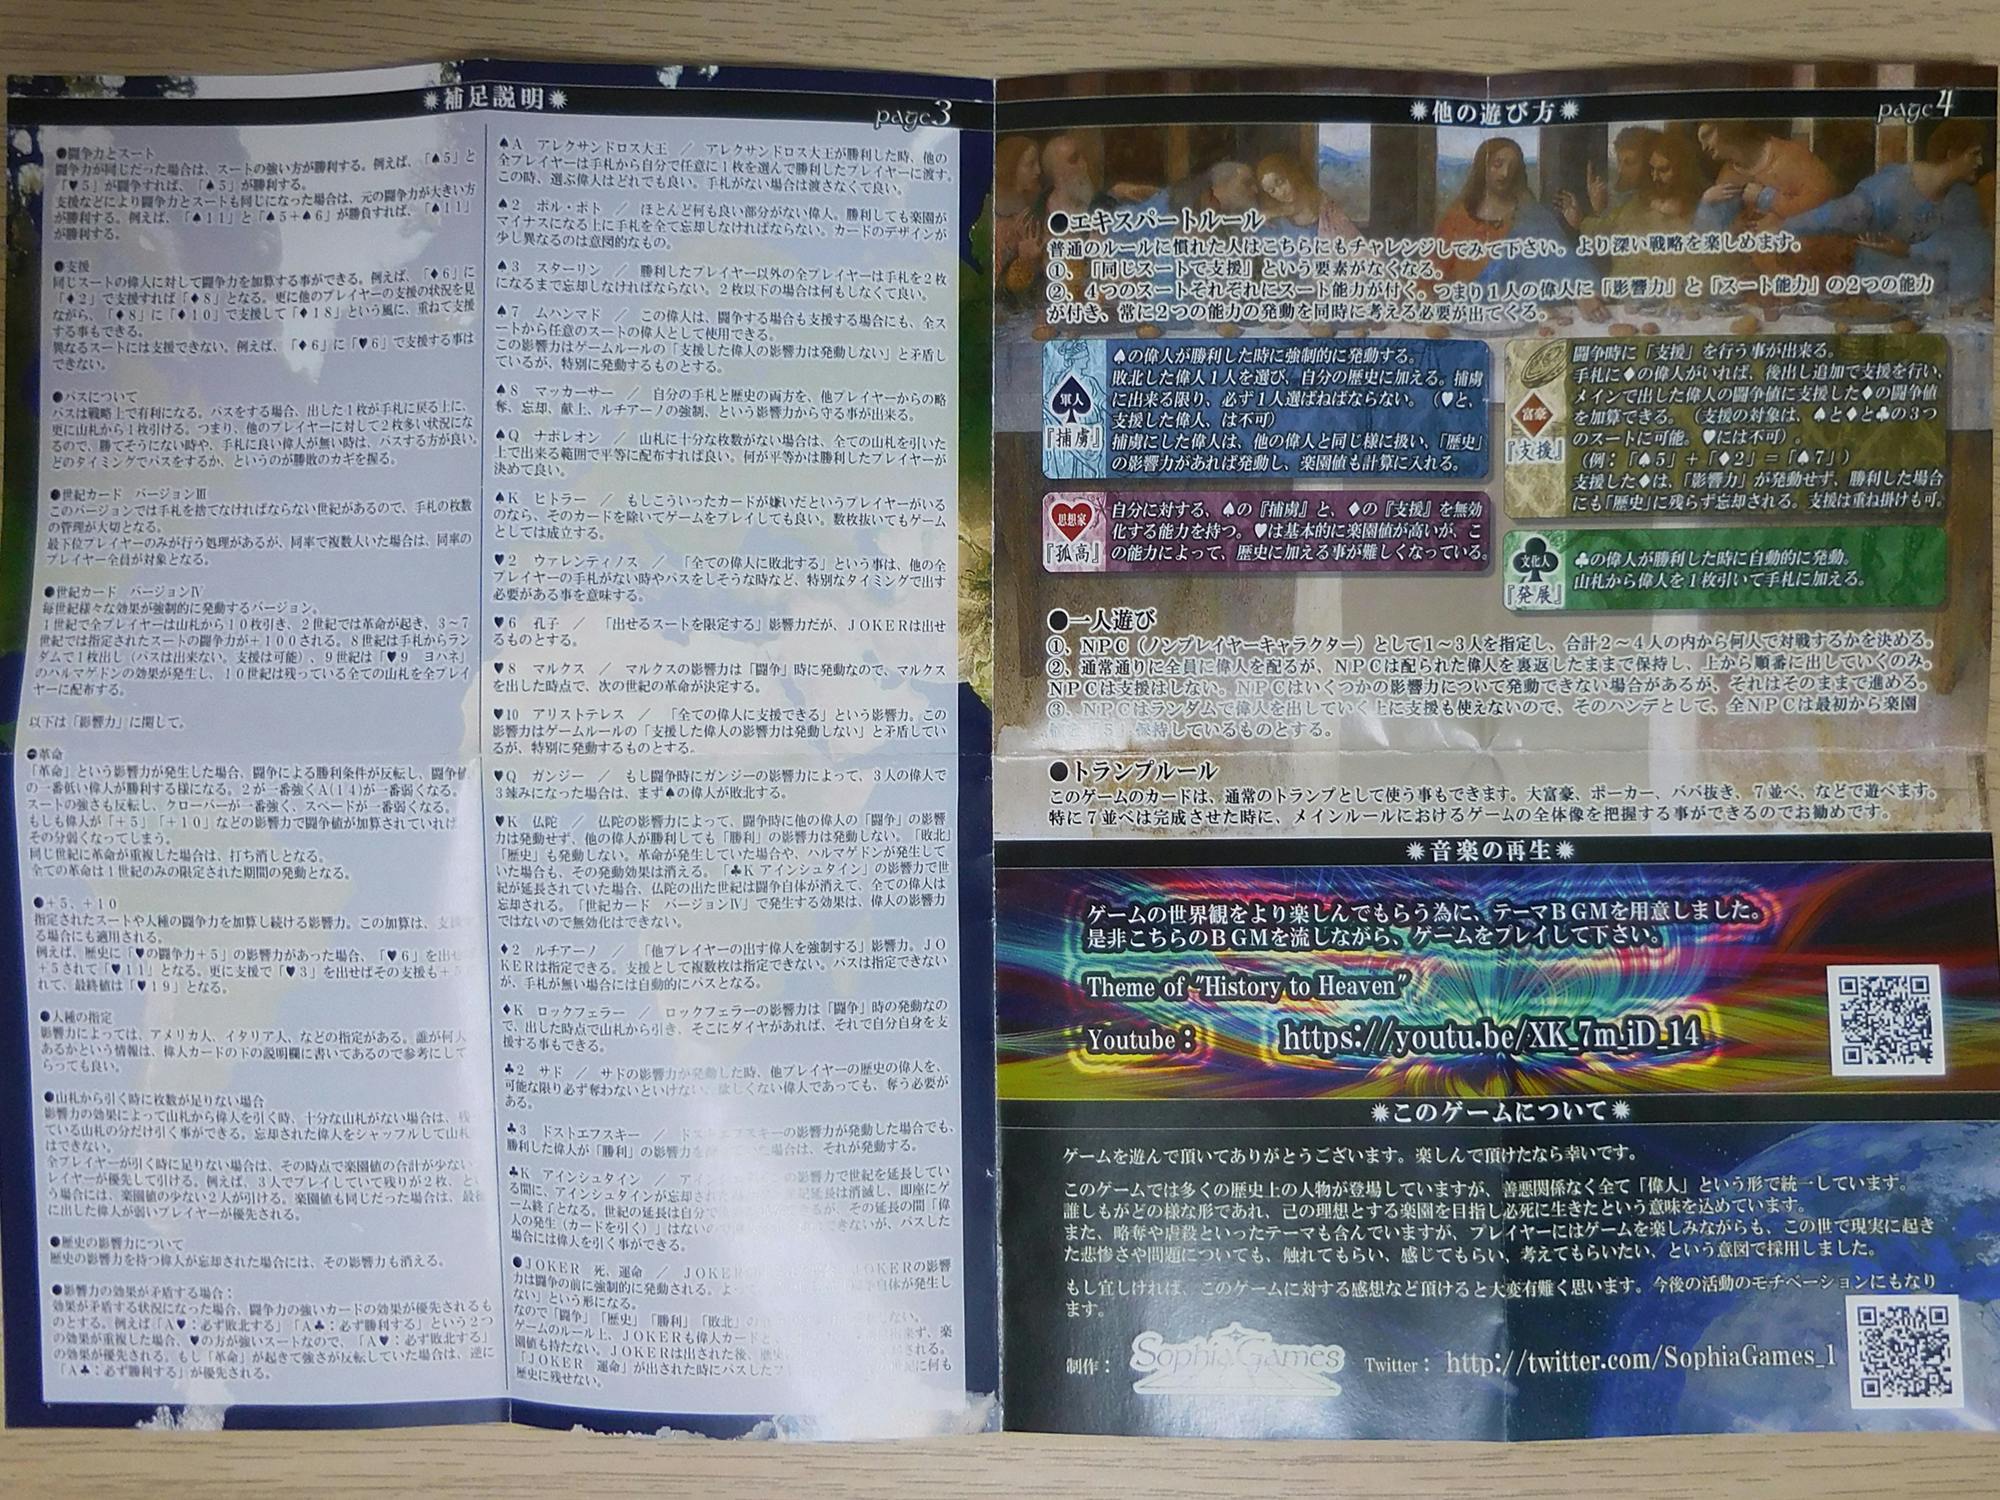 補足説明
page3
●闘争力とスート
闘争力が同じだった場合は、スートの強い方が勝利する。例えば、「♠5」と
「♥5」が闘争すれば、「♠5」が勝利する。
支援などにより闘争力とスートも同じになった場合は、元の闘争力が大きい方
が勝利する。例えば、「♠11」と「♠5+♠6」が勝負すれば、「♠11」
が勝利する。
●支援
同じスートの偉人に対して闘争力を加算する事ができる。例えば、「♦6」に
「♦2」で支援すれば「♦8」となる。更に他のプレイヤーの支援の状況を見
ながら、「♦8」に「♦10」で支援して「♦18」という風に、重ねて支援
する事もできる。
異なるスートには支援できない。例えば、「♦6」に「♥6」で支援する事は
できない。
●パスについて
パスは戦略上で有利になる。パスをする場合、出した1枚が手札に戻る上に、
更に山札から1枚引ける。つまり、他のプレイヤーに対して2枚多い状況にな
るので、勝てそうにない時や、手札に良い偉人が無い時は、パスする方が良い。
どのタイミングでパスをするか、というのが勝敗のカギを握る。
●世紀カード バージョンⅢ
このバージョンでは手札を捨てなければならない世紀があるので、手札の枚数
の管理が大切となる。
最下位プレイヤーのみが行う処理があるが、同率で複数人いた場合は、同率の
プレイヤー全員が対象となる。
●世紀カード バージョンⅣ
毎世紀様々な効果が強制的に発動するバージョン。
1世紀で全プレイヤーは山札から10枚引き、2世紀では革命が起き、3~7
世紀では指定されたスートの闘争力が+100される。8世紀は手札からラン
ダムで1枚出し(パスは出来ない。支援は可能)、9世紀は「♥9 ヨハネ」
のハルマゲドンの効果が発生し、10世紀は残っている全ての山札を全プレイ
ヤーに配布する。
以下は「影響力」に関して。
●革命
「革命」という影響力が発生した場合、闘争による勝利条件が反転し、闘争値
の一番低い偉人が勝利する様になる。2が一番強くA(14)が一番弱くなる。
スートの強さも反転し、クローバーが一番強く、スペードが一番弱くなる。
もしも偉人が「+5」「+10」などの影響力で闘争値が加算されていれば
その分弱くなってしまう。
同じ世紀に革命が重複した場合は、打ち消しとなる。
全ての革命は1世紀のみの限定された期間の発動となる。
●+5、+10
指定されたスートや人種の闘争力を加算し続ける影響力。この加算は、支援す
る場合にも適用される。
例えば、歴史に「♥の闘争力+5」の影響力があった場合、「♥6」を出せ
+5されて「♥11」となる。更に支援で「♥3」を出せばその支援も+5
れて、最終値は「♥19」となる。
●人種の指定
影響力によっては、アメリカ人、イタリア人、などの指定がある。誰が何人
あるかという情報は、偉人カードの下の説明欄に書いてあるので参考にして
らっても良い。
●山札から引く時に枚数が足りない場合
影響力の効果によって山札から偉人を引く時、十分な山札がない場合は、残っ
ている山札の分だけ引く事ができる。忘却された偉人をシャッフルして山札
はできない。
全プレイヤーが引く時に足りない場合は、その時点で楽園値の合計が少ない
レイヤーが優先して引ける。例えば、3人でプレイしていて残りが2枚、とい
う場合には、楽園値の少ない2人が引ける。楽園値も同じだった場合は、最後
に出した偉人が弱いプレイヤーが優先される。
●歴史の影響力について
歴史の影響力を持つ偉人が忘却された場合には、その影響力も消える。
●影響力の効果が矛盾する場合:
効果が矛盾する状況になった場合、闘争力の強いカードの効果が優先されるも
のとする。例えば「A♥:必ず敗北する」「A♣:必ず勝利する」という2つ
の効果が重複した場合、♥の方が強いスートなので、「A♥:必ず敗北する」
の効果が優先される。もし「革命」が起きて強さが反転していた場合は、逆に
「A♣:必ず勝利する」が優先される。
♠A アレクサンドロス大王 / アレクサンドロス大王が勝利した時、他の
全プレイヤーは手札から自分で任意に1枚を選んで勝利したプレイヤーに渡す。
この時、選ぶ偉人はどれでも良い。手札がない場合は渡さなくて良い。
♠2 ポル・ポト / ほとんど何も良い部分がない偉人。勝利しても楽園が
マイナスになる上に手札を全て忘却しなければならない。カードのデザインが
少し異なるのは意図的なもの。
♠3 スターリン / 勝利したプレイヤー以外の全プレイヤーは手札を2枚
になるまで忘却しなければならない。2枚以下の場合は何もしなくて良い。
♠7 ムハンマド / この偉人は、闘争する場合も支援する場合にも、全ス
ートから任意のスートの偉人として使用できる。
この影響力はゲームルールの「支援した偉人の影響力は発動しない」と矛盾し
ているが、特別に発動するものとする。
♠8 マッカーサー / 自分の手札と歴史の両方を、他プレイヤーからの略
奪、忘却、献上、ルチアーノの強制、という影響力から守る事が出来る。
♠Q ナポレオン / 山札に十分な枚数がない場合は、全ての山札を引いた
上で出来る範囲で平等に配布すれば良い。何が平等かは勝利したプレイヤーが
決めて良い。
♠K ヒトラー / もしこういったカードが嫌いだというプレイヤーがいる
のなら、そのカードを除いてゲームをプレイしても良い。数枚抜いてもゲーム
としては成立する。
♥2 ウァレンティノス / 「全ての偉人に敗北する」という事は、他の全
プレイヤーの手札がない時やパスをしそうな時など、特別なタイミングで出す
必要がある事を意味する。
♥6 孔子 / 「出せるスートを限定する」影響力だが、JOKERは出せ
るものとする。
♥8 マルクス / マルクスの影響力は「闘争」時に発動なので、マルクス
を出した時点で、次の世紀の革命が決定する。
♥10 アリストテレス / 「全ての偉人に支援できる」という影響力。この
影響力はゲームルールの「支援した偉人の影響力は発動しない」と矛盾してい
るが、特別に発動するものとする。
♥Q ガンジー / もし闘争時にガンジーの影響力によって、3人の偉人で
3竦みになった場合は、まず♠の偉人が敗北する。
♥K 仏陀 / 仏陀の影響力によって、闘争時に他の偉人の「闘争」の影響
力は発動せず、他の偉人が勝利しても「勝利」の影響力は発動しない。「敗北」
「歴史」も発動しない。革命が発生していた場合や、ハルマゲドンが発生して
いた場合も、その発動効果は消える。「♣K アインシュタイン」の影響力で世
紀が延長されていた場合、仏陀の出た世紀は闘争自体が消えて、全ての偉人は
忘却される。「世紀カード バージョンⅣ」で発生する効果は、偉人の影響力
ではないので無効化はできない。
♦2 ルチアーノ / 「他プレイヤーの出す偉人を強制する」影響力。JO
KERは指定できる。支援として複数枚は指定できない。パスは指定できない
が、手札が無い場合には自動的にパスとなる。
♦K ロックフェラー / ロックフェラーの影響力は「闘争」時の発動なの
で、出した時点で山札から引き、そこにダイヤがあれば、それで自分自身を支
援する事もできる。
♣2 サド / サドの影響力が発動した時、他プレイヤーの歴史の偉人を、
可能な限り必ず奪わないといけない。欲しくない偉人であっても、奪う必要が
ある。
♣3 ドストエフスキー / ドストエフスキーの影響力が発動した場合でも、
勝利した偉人が「勝利」の影響力を ていた場合は、それが発動する。
♣K アインシュタイン / の影響力で世紀を延長してい
る間に、アインシュタインが忘却された 世紀延長は消滅し、即座にゲ
ーム終了となる。世紀の延長は自分で るが、その延長の間「偉
人の発生(カードを引く)」はないので できないが、パスした
場合には偉人を引く事ができる。
●JOKER 死、運命 / JOKER JOKERの影響
力は闘争の前に強制的に発動される。よって 自体が発生し
ない」という形になる。
なので「闘争」「歴史」「勝利」「敗北」の しない。
ゲームのルール上、JOKERも偉人カードと 出来ず、楽
園値も持たない。JOKERは出された後、歴史 される。
「JOKER 運命」が出された時にパスしたプ に何も
歴史に残せない。
他の遊び方
page4
●エキスパートルール
普通のルールに慣れた人はこちらにもチャレンジしてみて下さい。より深い戦略を楽しめます。
①、『同じスートで支援』という要素がなくなる。
②、4つのスートそれぞれにスート能力が付く。つまり1人の偉人に「影響力」と「スート能力」の2つの能力
が付き、常に2つの能力の発動を同時に考える必要が出てくる。
軍人
『捕虜』
♠の偉人が勝利した時に強制的に発動する。
敗北した偉人1人を選び、自分の歴史に加える。捕虜
に出来る限り、必ず1人選ばねばならない。(♥と、
支援した偉人、は不可)
捕虜にした偉人は、他の偉人と同じ様に扱い、「歴史」
の影響力があれば発動し、楽園値も計算に入れる。
思想家
『孤高』
自分に対する、♠の『捕虜』と、♦の『支援』を無効
化する能力を持つ。♥は基本的に楽園値が高いが、こ
の能力によって、歴史に加える事が難しくなっている。
富豪
『支援』
闘争時に「支援」を行う事が出来る。
手札に♦の偉人がいれば、後出し追加で支援を行い、
メインで出した偉人の闘争値に支援した♦の闘争値
を加算できる。(支援の対象は、♠と♦と♣の3つ
のスートに可能。♥には不可)。
(例:「♠5」+「♦2」=「♠7」)
支援した♦は、「影響力」が発動せず、勝利した場合
にも「歴史」に残らず忘却される。支援は重ね掛けも可。
文化人
『発展』
♣の偉人が勝利した時に自動的に発動。
山札から偉人を1枚引いて手札に加える。
●一人遊び
①、NPC(ノンプレイヤーキャラクター)として1~3人を指定し、合計2~4人の内から何人で対戦するかを決める。
②、通常通りに全員に偉人を配るが、NPCは配られた偉人を裏返したままで保持し、上から順番に出していくのみ。
NPCは支援はしない。NPCはいくつかの影響力について発動できない場合があるが、それはそのままで進める。
③、NPCはランダムで偉人を出していく上に支援も使えないので、そのハンデとして、全NPCは最初から楽園
値を「5」保持しているものとする。
●トランプルール
このゲームのカードは、通常のトランプとして使う事もできます。大富豪、ポーカー、ババ抜き、7並べ、などで遊べます。
特に7並べは完成させた時に、メインルールにおけるゲームの全体像を把握する事ができるのでお勧めです。
音楽の再生
ゲームの世界観をより楽しんでもらう為に、テーマBGMを用意しました。
是非こちらのBGMを流しながら、ゲームをプレイして下さい。
Theme of "History to Heaven"
Youtube: https://youtu.be/XK_7m_iD_14
このゲームについて
ゲームを遊んで頂いてありがとうございます。楽しんで頂けたなら幸いです。
このゲームでは多くの歴史上の人物が登場していますが、善悪関係なく全て「偉人」という形で統一しています。
誰しもがどの様な形であれ、己の理想とする楽園を目指し必死に生きたという意味を込めています。
また、略奪や虐殺といったテーマも含んでいますが、プレイヤーにはゲームを楽しみながらも、この世で現実に起き
た悲惨さや問題についても、触れてもらい、感じてもらい、考えてもらいたい、という意図で採用しました。
もし宜しければ、このゲームに対する感想など頂けると大変有難く思います。今後の活動のモチベーションにもなり
ます。
制作: SophiaGames Twitter: http://twitter.com/SophiaGames_1